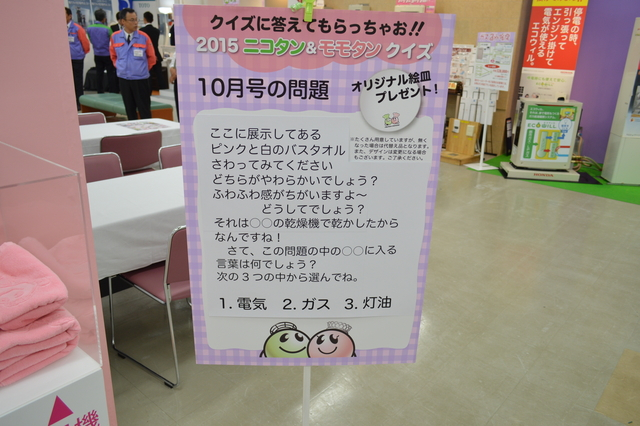 クイズに答えてもらっちゃお!!
2015 ニコタン&モモタン クイズ
10月号の問題
オリジナル絵皿
プレゼント!
※たくさん用意していますが、無く
なった場合は代替え品となります。
また、デザインは変更になる場合
もございます。ご了承ください。
ここに展示してある
ピンクと白のバスタオル
さわってみてください
どちらがやわらかいでしょう?
ふわふわ感がちがいますよ～
どうしてでしょう?
それは○○の乾燥機で乾かしたから
なんですね!
さて、この問題の中の○○に入る
言葉は何でしょう?
次の3つの中から選んでね。
1. 電気 2. ガス 3. 灯油
停電の時、
引っ張って
エンジン掛けて
電気が使える
エコウィル。
機